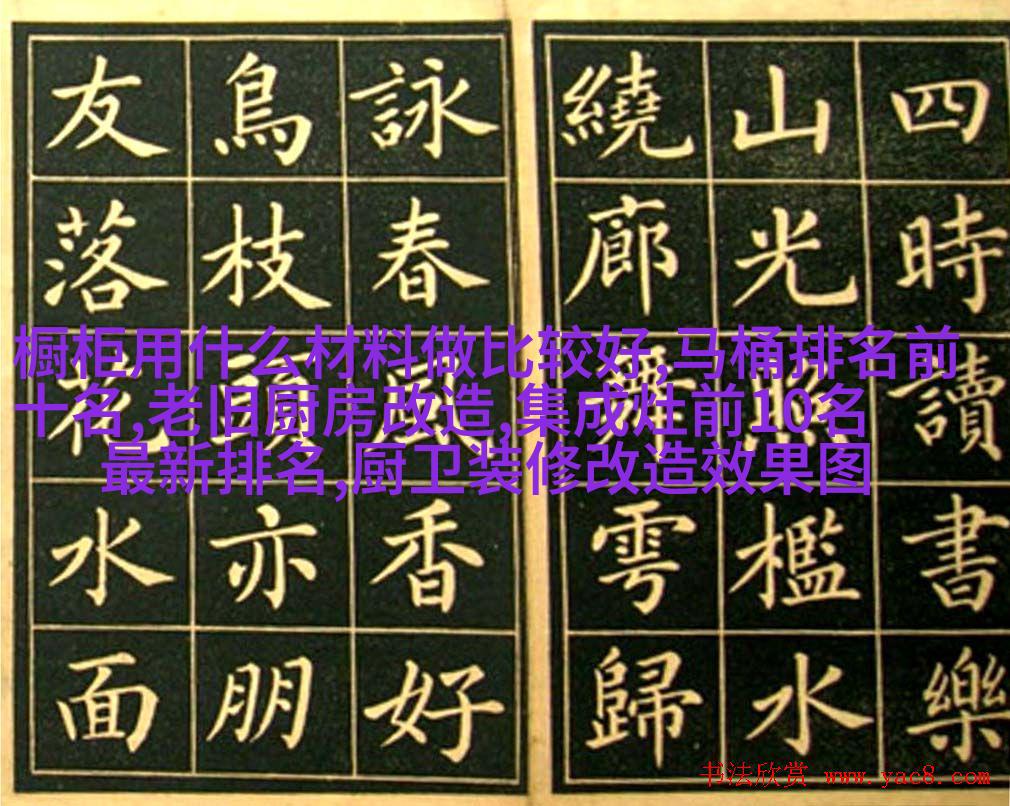 四時讀書樂
山光照檻水
繞廊舞雩歸
詠春風香好
鳥枝頭亦朋
友落花水面
橱柜用什么材料做比较好,马桶排名前
十名,老旧厨房改造,集成灶前10名
最新排名,厨卫装修改造效果图
书法欣赏 www.yac8.com